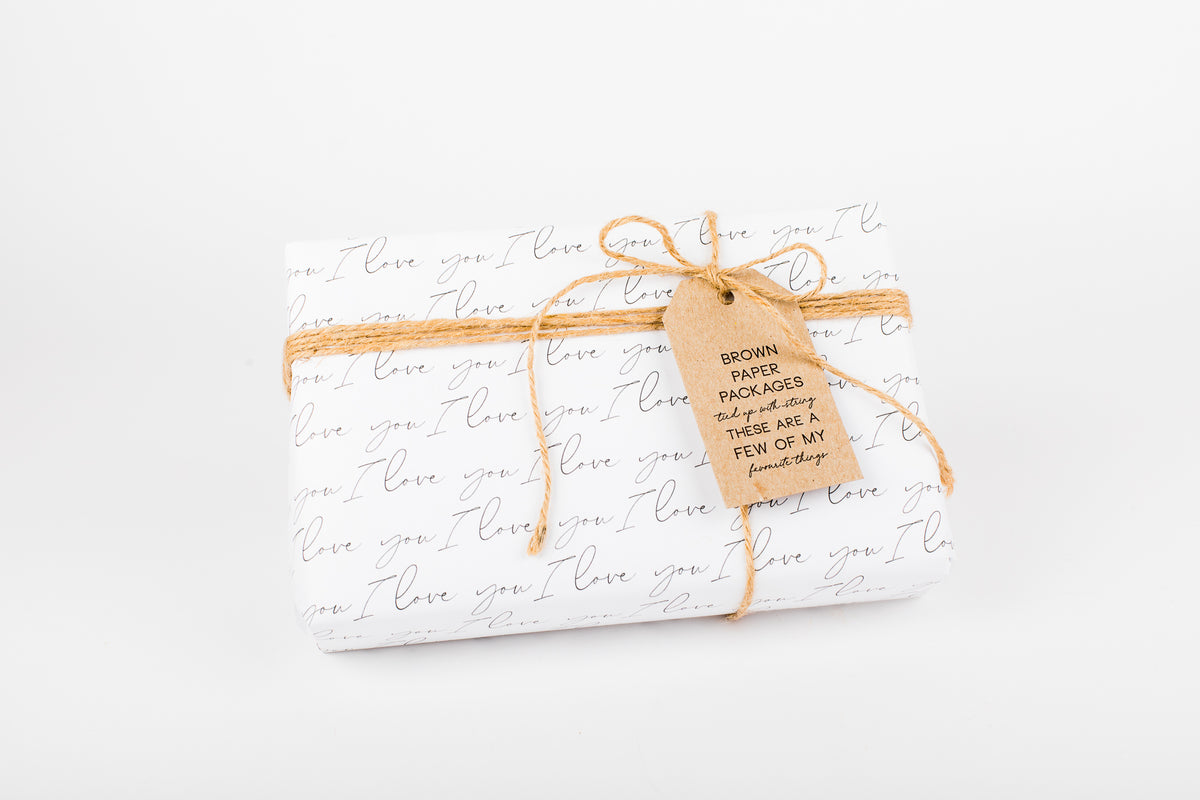 you I love you I love you I love you I lo
love you I love you I love you I love you
you I love you I love you you I lo
love you I love you I love you
you I love you I love you I lo
love you I love you I love you I love you
you I love you I love you I love you I lo
love you I love you I love you I love you
BROWN
PAPER
PACKAGES
tied up with string
THESE ARE A
FEW OF MY
favourite things